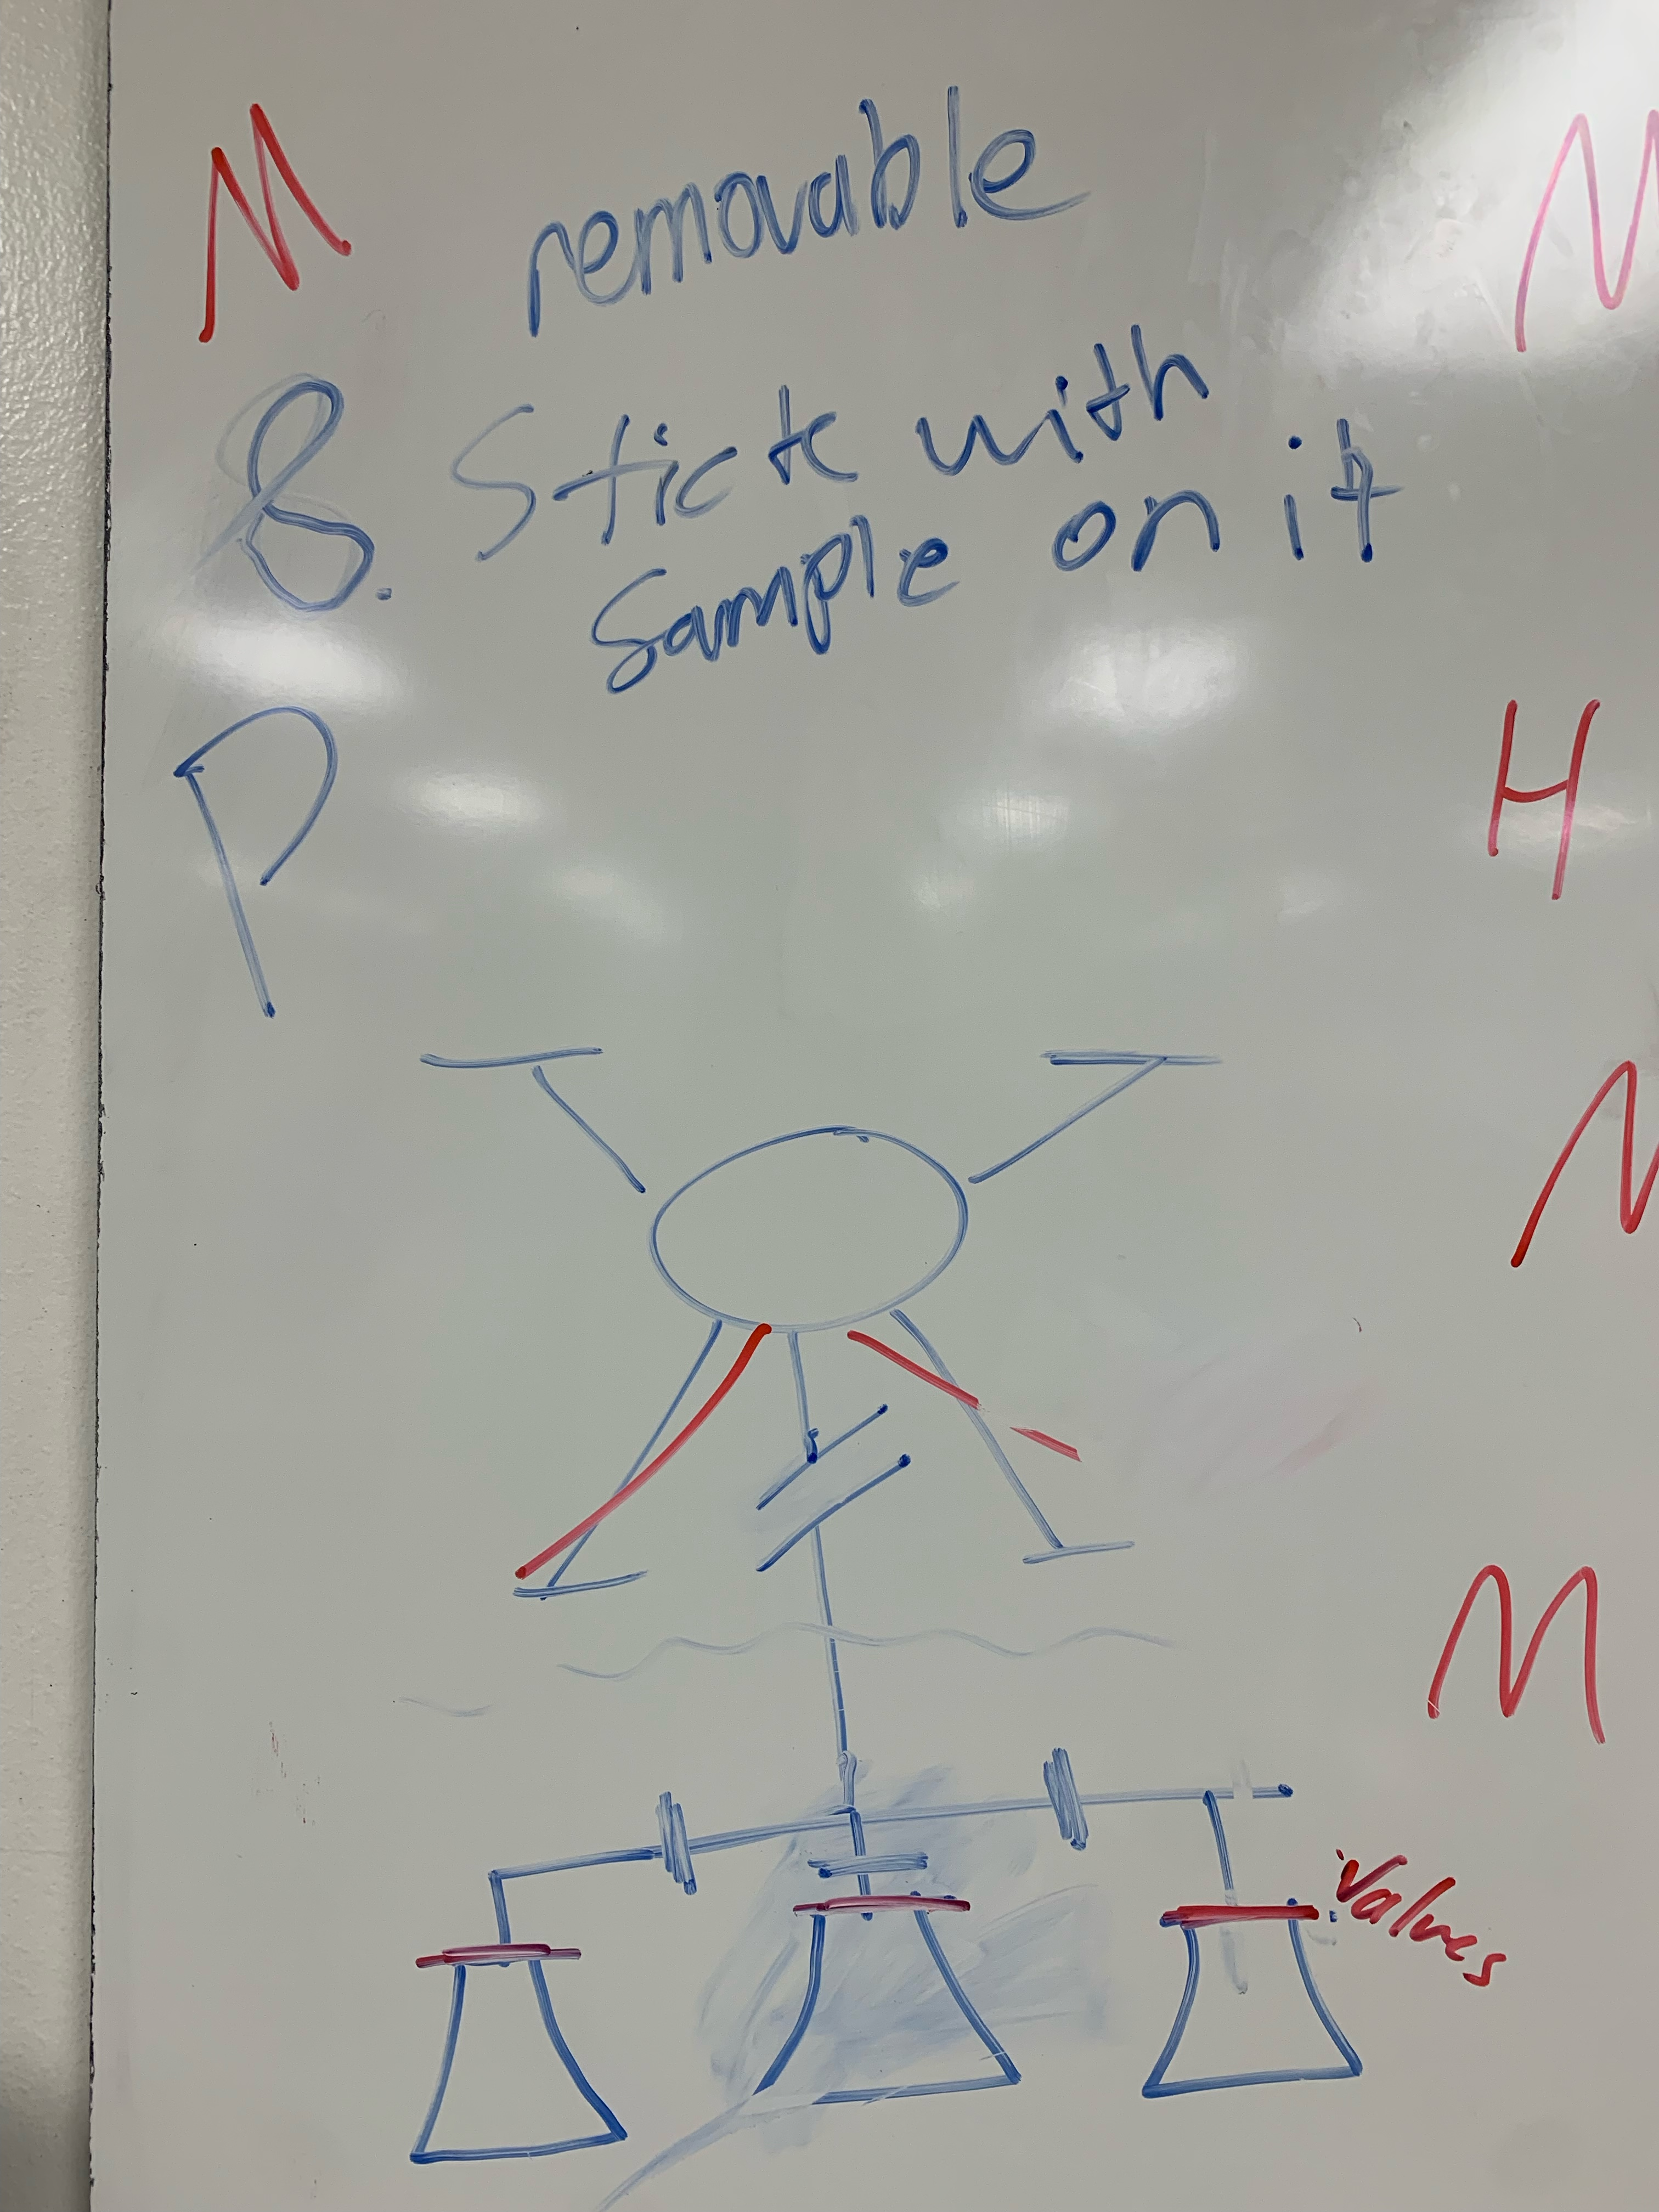 M
removable
M
8. Stick with
sample on it
P
H
M
M
Valves